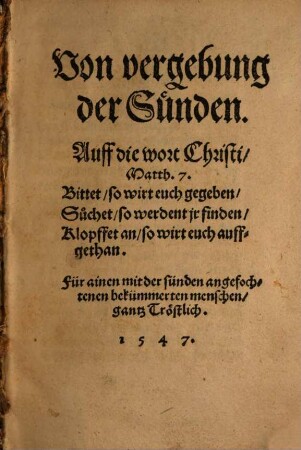 Von vergebung
der Sünden.
Auff die wort Christi/
Matth. 7.
Bittet/so wirt euch gegeben/
Sůchet/so werdent jr finden/
Klopffet an/so wirt euch auff-
gethan.
Für ainen mit der sünden angefoch-
tenen bekümmerten menschen/
gantz Tröstlich.
1547.